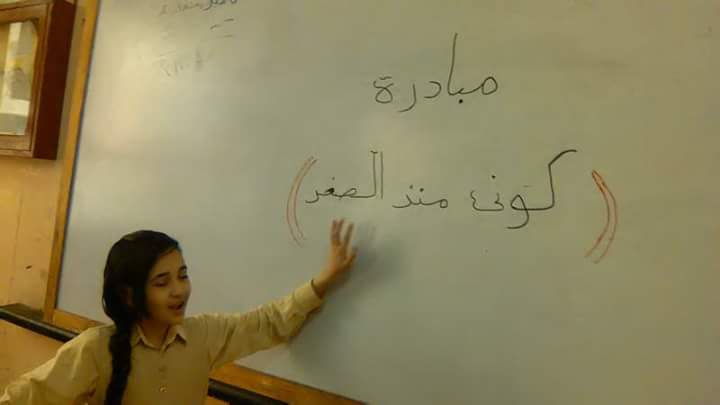 مبادرة
(كونى منذ الصغر)